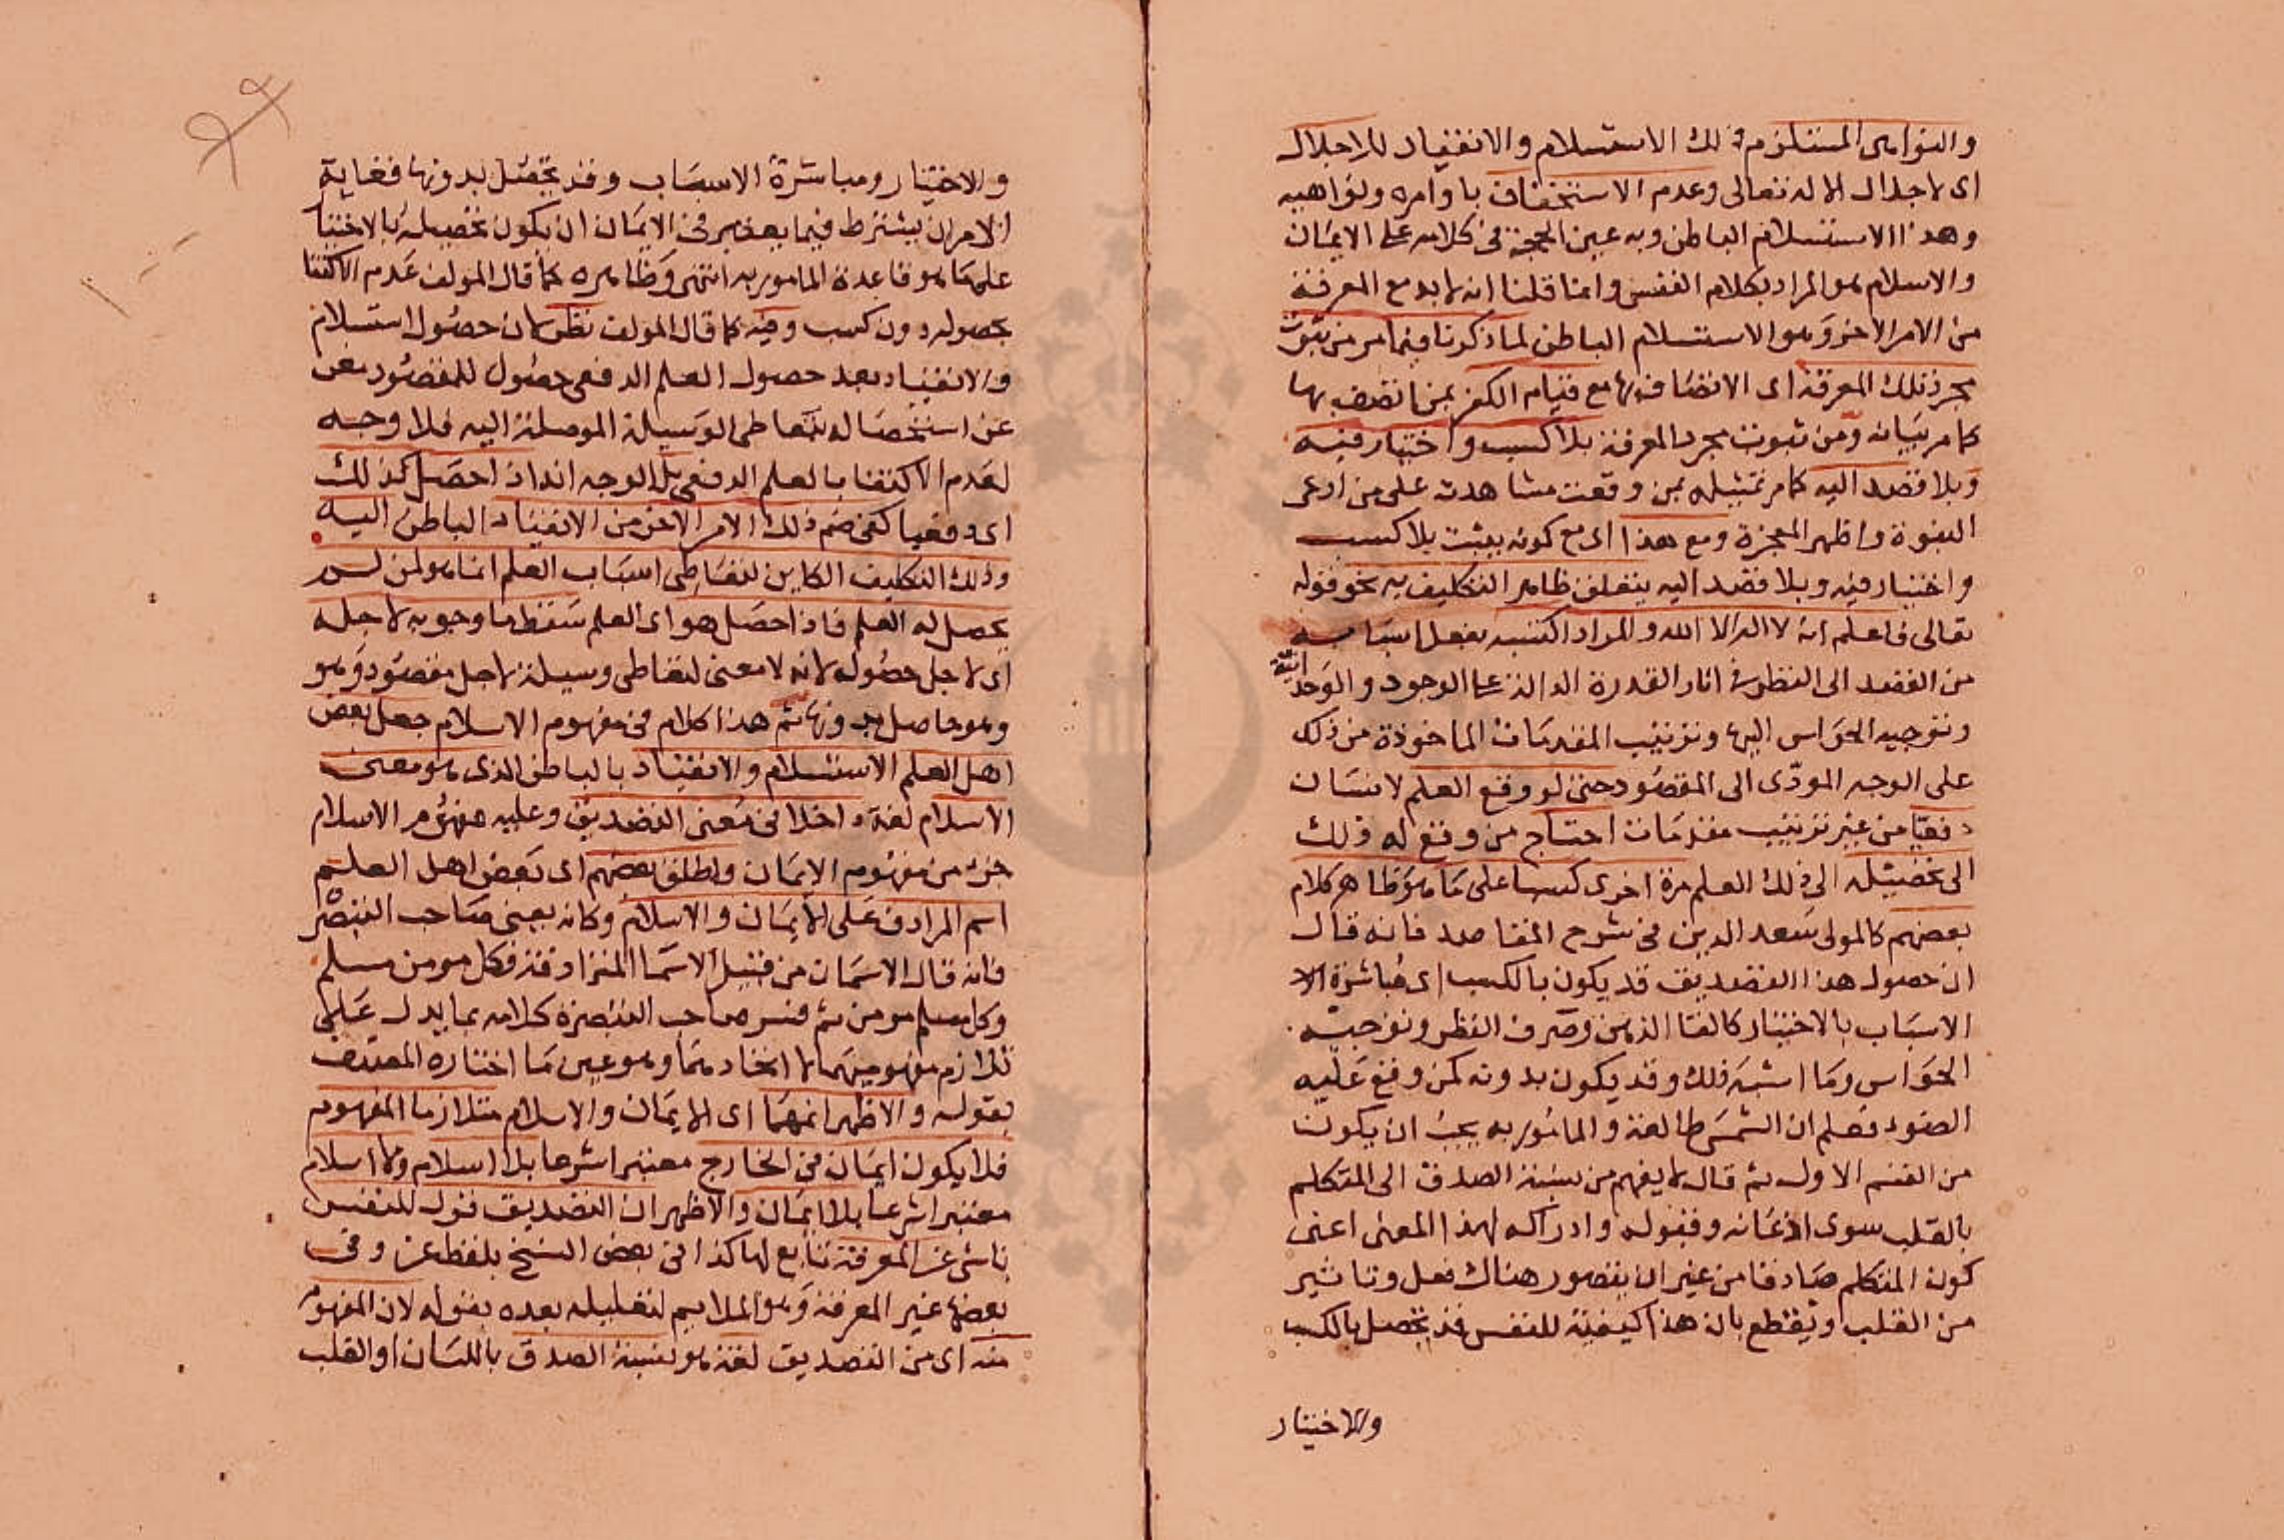 والنواهى المستلزم ذلك الاستسلام والانقياد للاجلال
اى لاجلال الاله تعالى وعدم الاستخفاف باوامره ونواهيه
وهذا الاستسلام الباطن وبه عبر الحجة فى كلامه على الايمان
والاسلام هو المراد بكلام النفس وانما قلنا انه لابد مع المعرفة
من الامر الاخر وهو الاستسلام الباطن لما ذكرنا فيما مر من ثبوت
مجرد تلك المعرفة اى الاتصاف بها مع قيام الكفر بمن اتصف بها
كما مر بيانه ومن ثبوت مجرد المعرفة بلا كسب واختيار فيه
وبلا قصد اليه كما مر تمثيله بمن وقعت مشاهدته على من ادعى
النبوة واظهر المعجزة ومع هذا اى مع كونه يثبت بلا كسب
واختيار فيه وبلا قصد اليه يتعلق ظاهر التكليف به نحو قوله
تعالى فاعلم انه لا اله الا الله والمراد اكتسبه بفعل اسبابه
من القصد الى النظر فى اثار القدرة الدالة على الوجود والوحدانية
وتوجيه الحواس اليها وترتيب المقدمات الماخوذة من ذلك
على الوجه المودى الى المقصود حتى لو وقع العلم لانسان
دفعيا من غير ترتيب مقدمات احتاج من وقع له ذلك
الى تحصيله الى ذلك العلم مرة اخرى كسبا على ما هو ظاهر كلام
بعضهم كالمولى سعد الدين فى شرح المقاصد فانه قال
ان حصول هذا التصديق قد يكون بالكسب اى مباشرة الا
الاسباب بالاختيار كالقا الذهن وصرف النظر وتوجيه
الحواس وما اشبه ذلك وقد يكون بدونه كمن وقع عليه
الضوء فعلم ان الشمس طالعة والمامور به يجب ان يكون
من القسم الاول ثم قال لا يفهم من نسبة الصدق الى المتكلم
بالقلب سوى اذعانه وقبوله وادراكه لهذا المعنى اعنى
كون المتكلم صادقا من غير ان يتصور هناك فعل وتاثير
من القلب ويقطع بان هذا كيفية للنفس قد تحصل بالكسب
والاختيار
والاختيار ومباشرة الاسباب وقد تحصل بدونها فغاية
الامر ان يشترط فيما يعتبر فى الايمان ان يكون تحصيله بالاختيا
على ما هو قاعدة المامور به انتهى وظاهره كما قال المولف عدم الاكتفا
بحصوله دون كسب وفيه كما قال المولف نظر لان حصول استسلام
والانقياد بعد حصول العلم الدفعى حصول للمقصود مغن
عن استحصاله بتعاطى الوسيلة الموصلة اليه فلا وجه
لعدم الاكتفا بالعلم الدفعى بل الوجه انه اذا حصل كذلك
اى دفعيا كفى ضم ذلك الامر الاخر من الانقياد الباطن اليه
وذلك التكليف الكاين لتعاطى اسباب العلم انما هو لمن ليس
يحصل له العلم فاذا حصل هو اى العلم سقط ما وجوبه لاجله
اى لاجل حصوله لانه لا معنى لتعاطى وسيلة لاجل مقصود وهو
وهو حاصل بدونها ثم هذا كلام فى مفهوم الاسلام جعل بعض
اهل العلم الاستسلام والانقياد بالباطن الذى هو معنى
الاسلام لغة داخلا فى معنى التصديق وعليه مفهوم الاسلام
جزء من مفهوم الايمان واطلق بعضهم اى بعض اهل العلم
اسم المرادف على الايمان والاسلام وكانه يعنى صاحب التبصره
فانه قال الاسمان من قبيل الاسما المترادفة فكل مومن مسلم
وكل مسلم مومن ثم فسر صاحب التبصرة كلامه بما يدل على
تلازم مفهوميهما لا اتحادهما وهو عين ما اختاره المصنف
بقوله والاظهر انهما اى الايمان والاسلام متلازما المفهوم
فلا يكون ايمان فى الخارج معتبرا شرعا بلا اسلام ولا اسلام
معتبر اشرعا بلا ايمان والاظهر ان التصديق قول للنفس
ناشى عن المعرفة تابع لها كذا فى بعض النسخ بلفظ عن وفى
بعضها غير المعرفة وهو الملايم لتعليله بعده بقوله لان المفهوم
منه اى من التصديق لغة هو نسبة الصدق باللسان او القلب